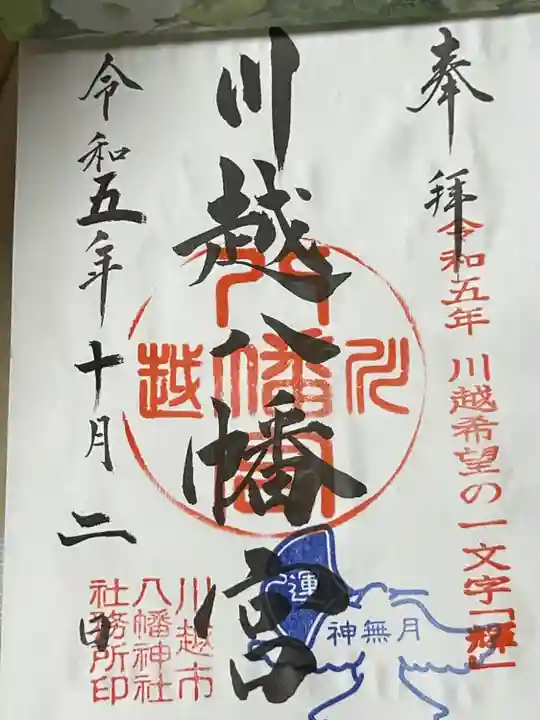 奉拝
令和五年 川越希望の一文字「輝」
川越八幡宮
川越八幡宮
運
神無月
川越市
八幡神社
社務所印
令和五年十月二日